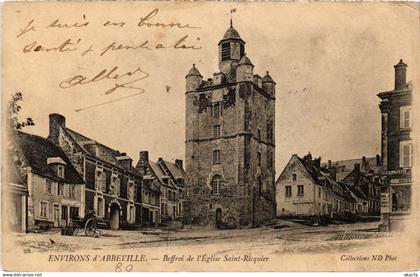 je suis en bonne
santé & pense à toi
www.delcampe.net
ENVIRONS d'ABBEVILLE. — Beffroi de l'Église Saint-Ricquier
Collections ND Phot
80